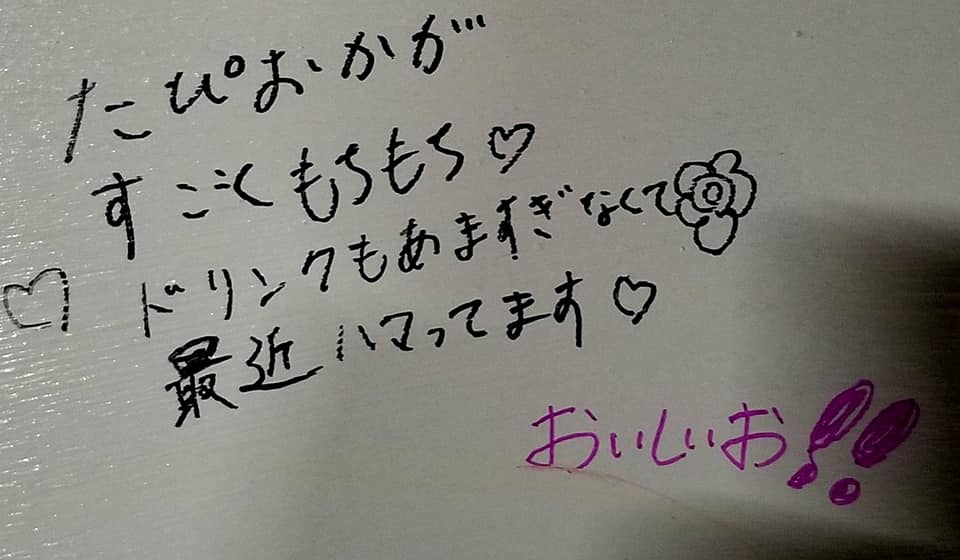 たぴおかが
すごくもちもち♡
♡ ドリンクもあますぎなくて
最近ハマってます♡
おいしいお!!